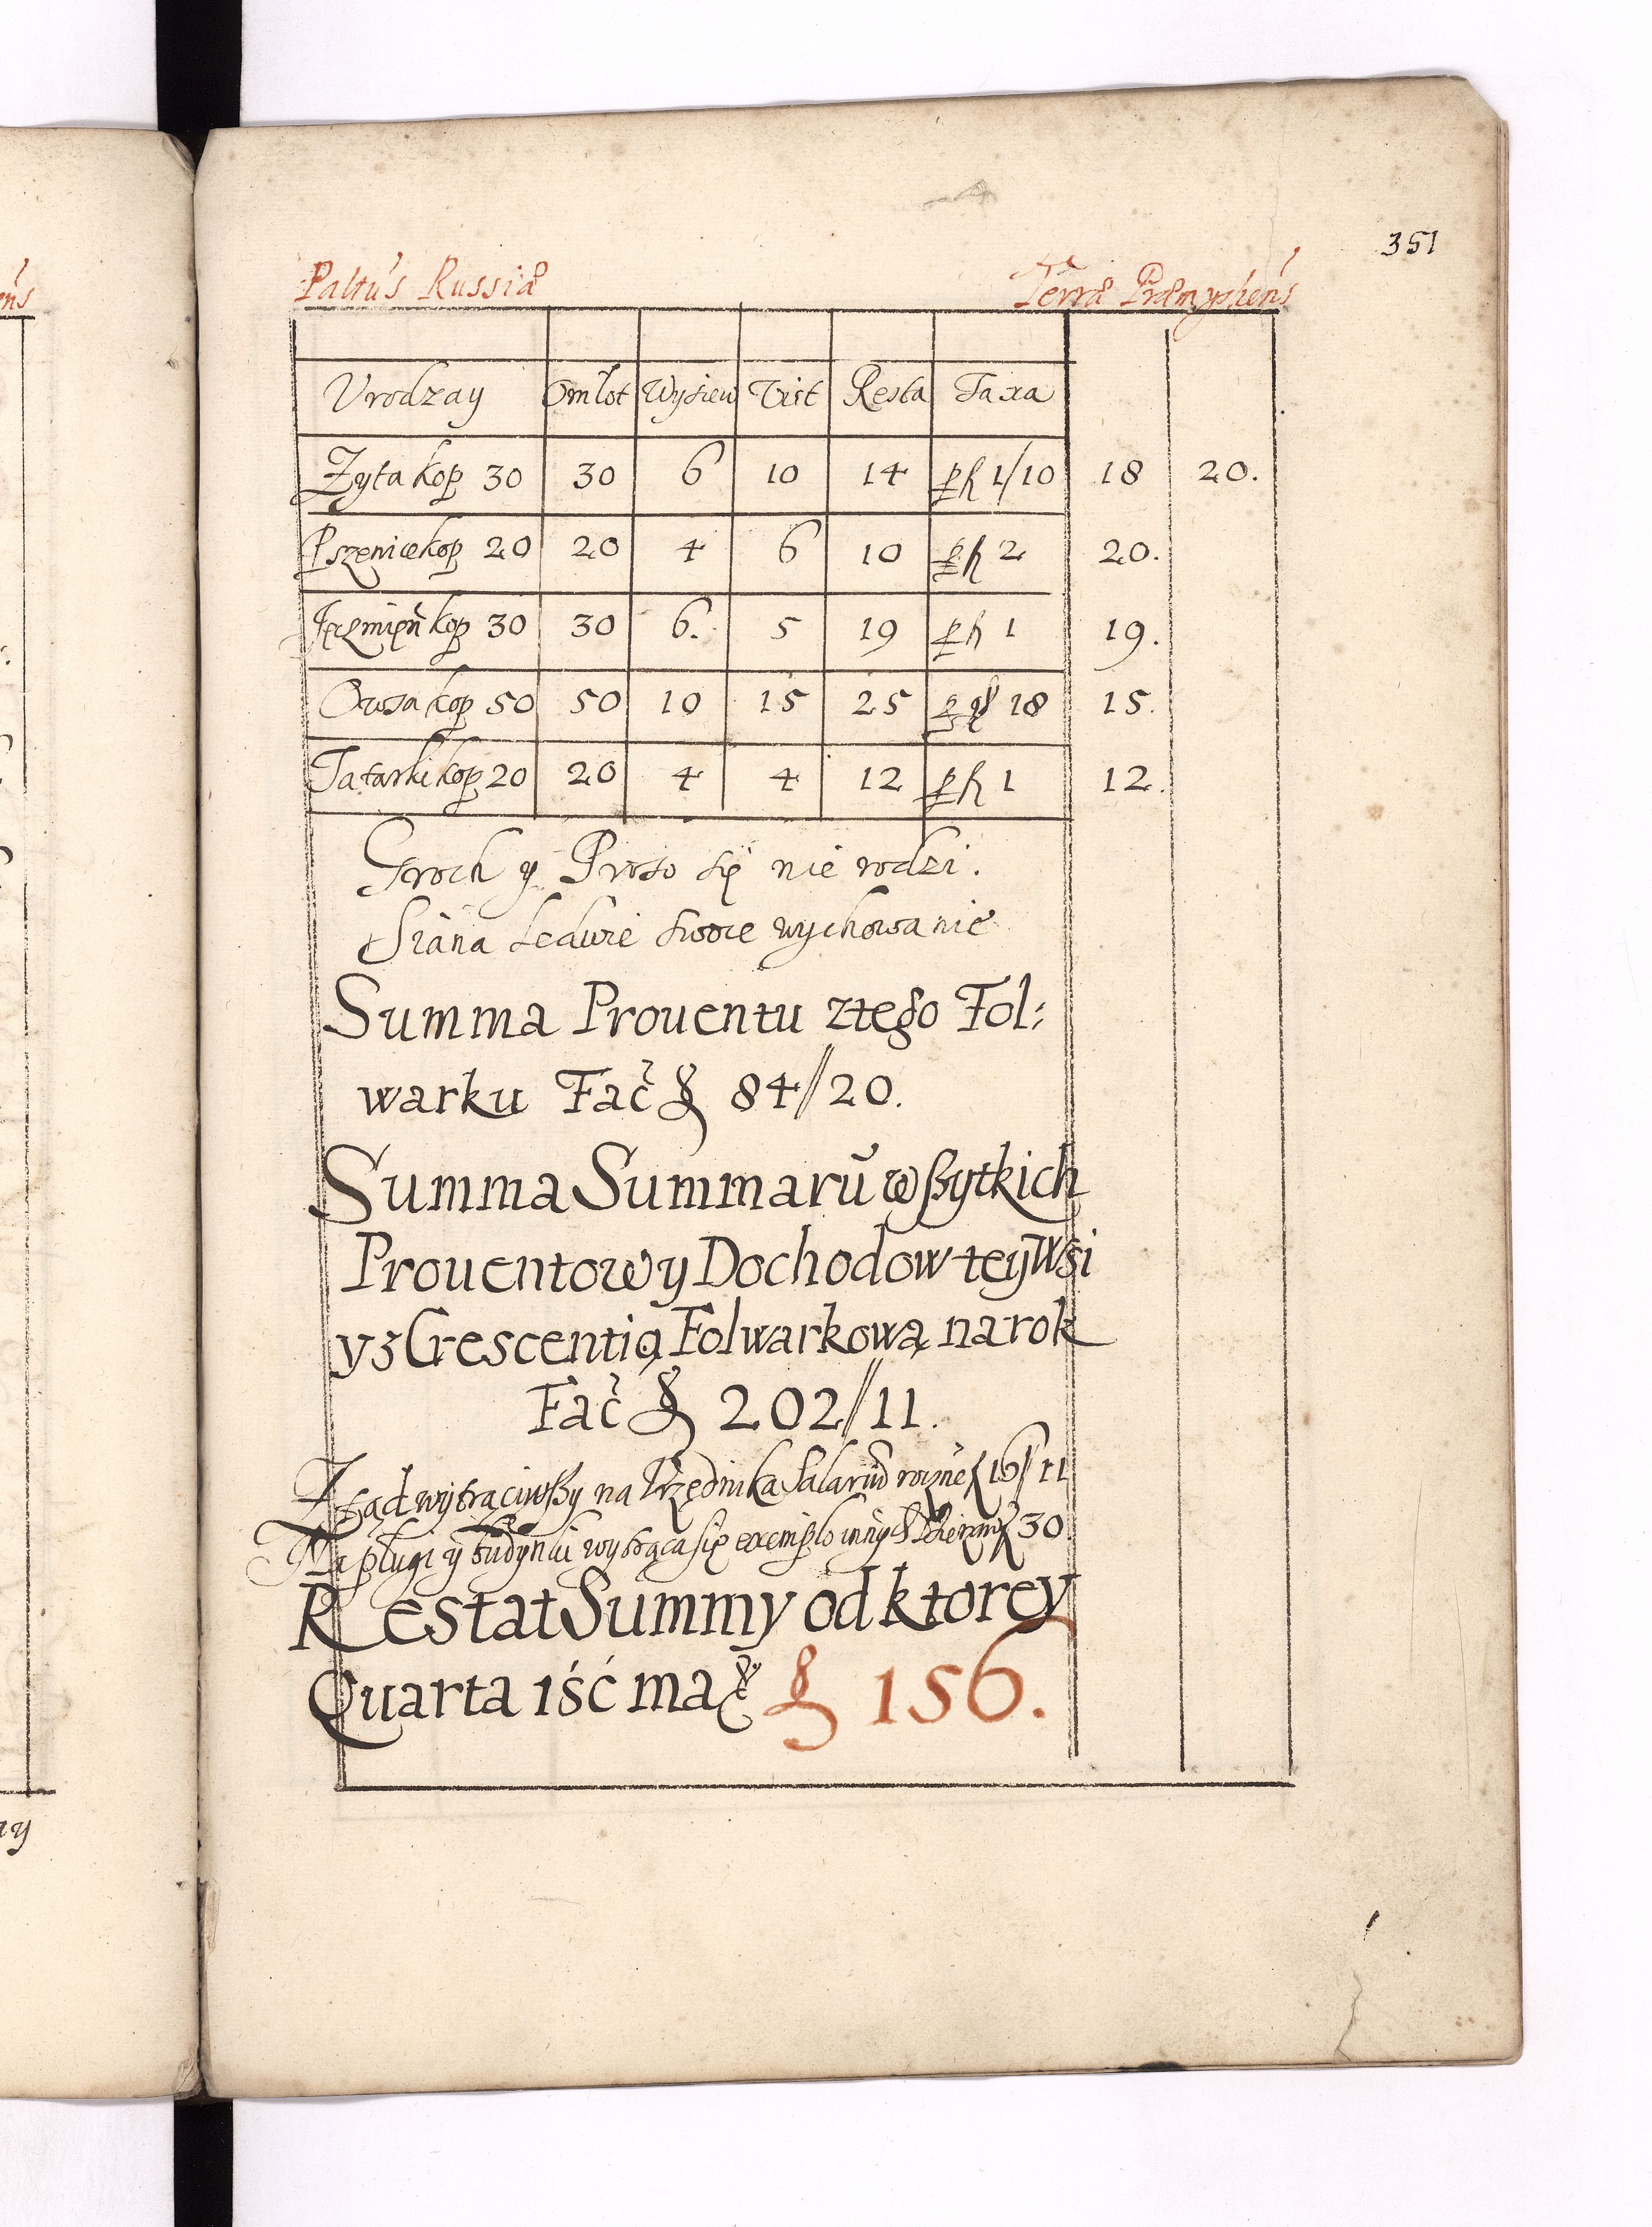 351
Paltus Russiæ Terræ Præmysliens
Urodzay Omłot Wysiew Vict Resta Taxa
Zyta kop 30 30 6 10 14 p fl 1/10 18 20.
Pszenice kop 20 20 4 6 10 p fl 2 20.
Jęczmień kop 30 30 6. 5 19 p fl 1 19.
Owsa kop 50 50 10 15 25 p gr 18 15.
Tatarki kop 20 20 4 4 12 p fl 1 12.
Groch y Proso się nie rodzi.
Siana ledwie swoie wychowanie
Summa Prouentu z tego Fol:
warku Fac̃ fl 84//20.
Summa Summarũ wßytkich
Prouentow y Dochodow tey Wsi
y z Crescentią Folwarkową na rok
Fac̃ fl 202//11.
Ztąd wytrąciwßy na Vrzędnika Salariũ roczne fl 16//11
Na pługi y budynki wytrąca się exemplo innych Dzierzaw fl 30
Restat Summy od ktorey
Quarta iść ma fl 156.